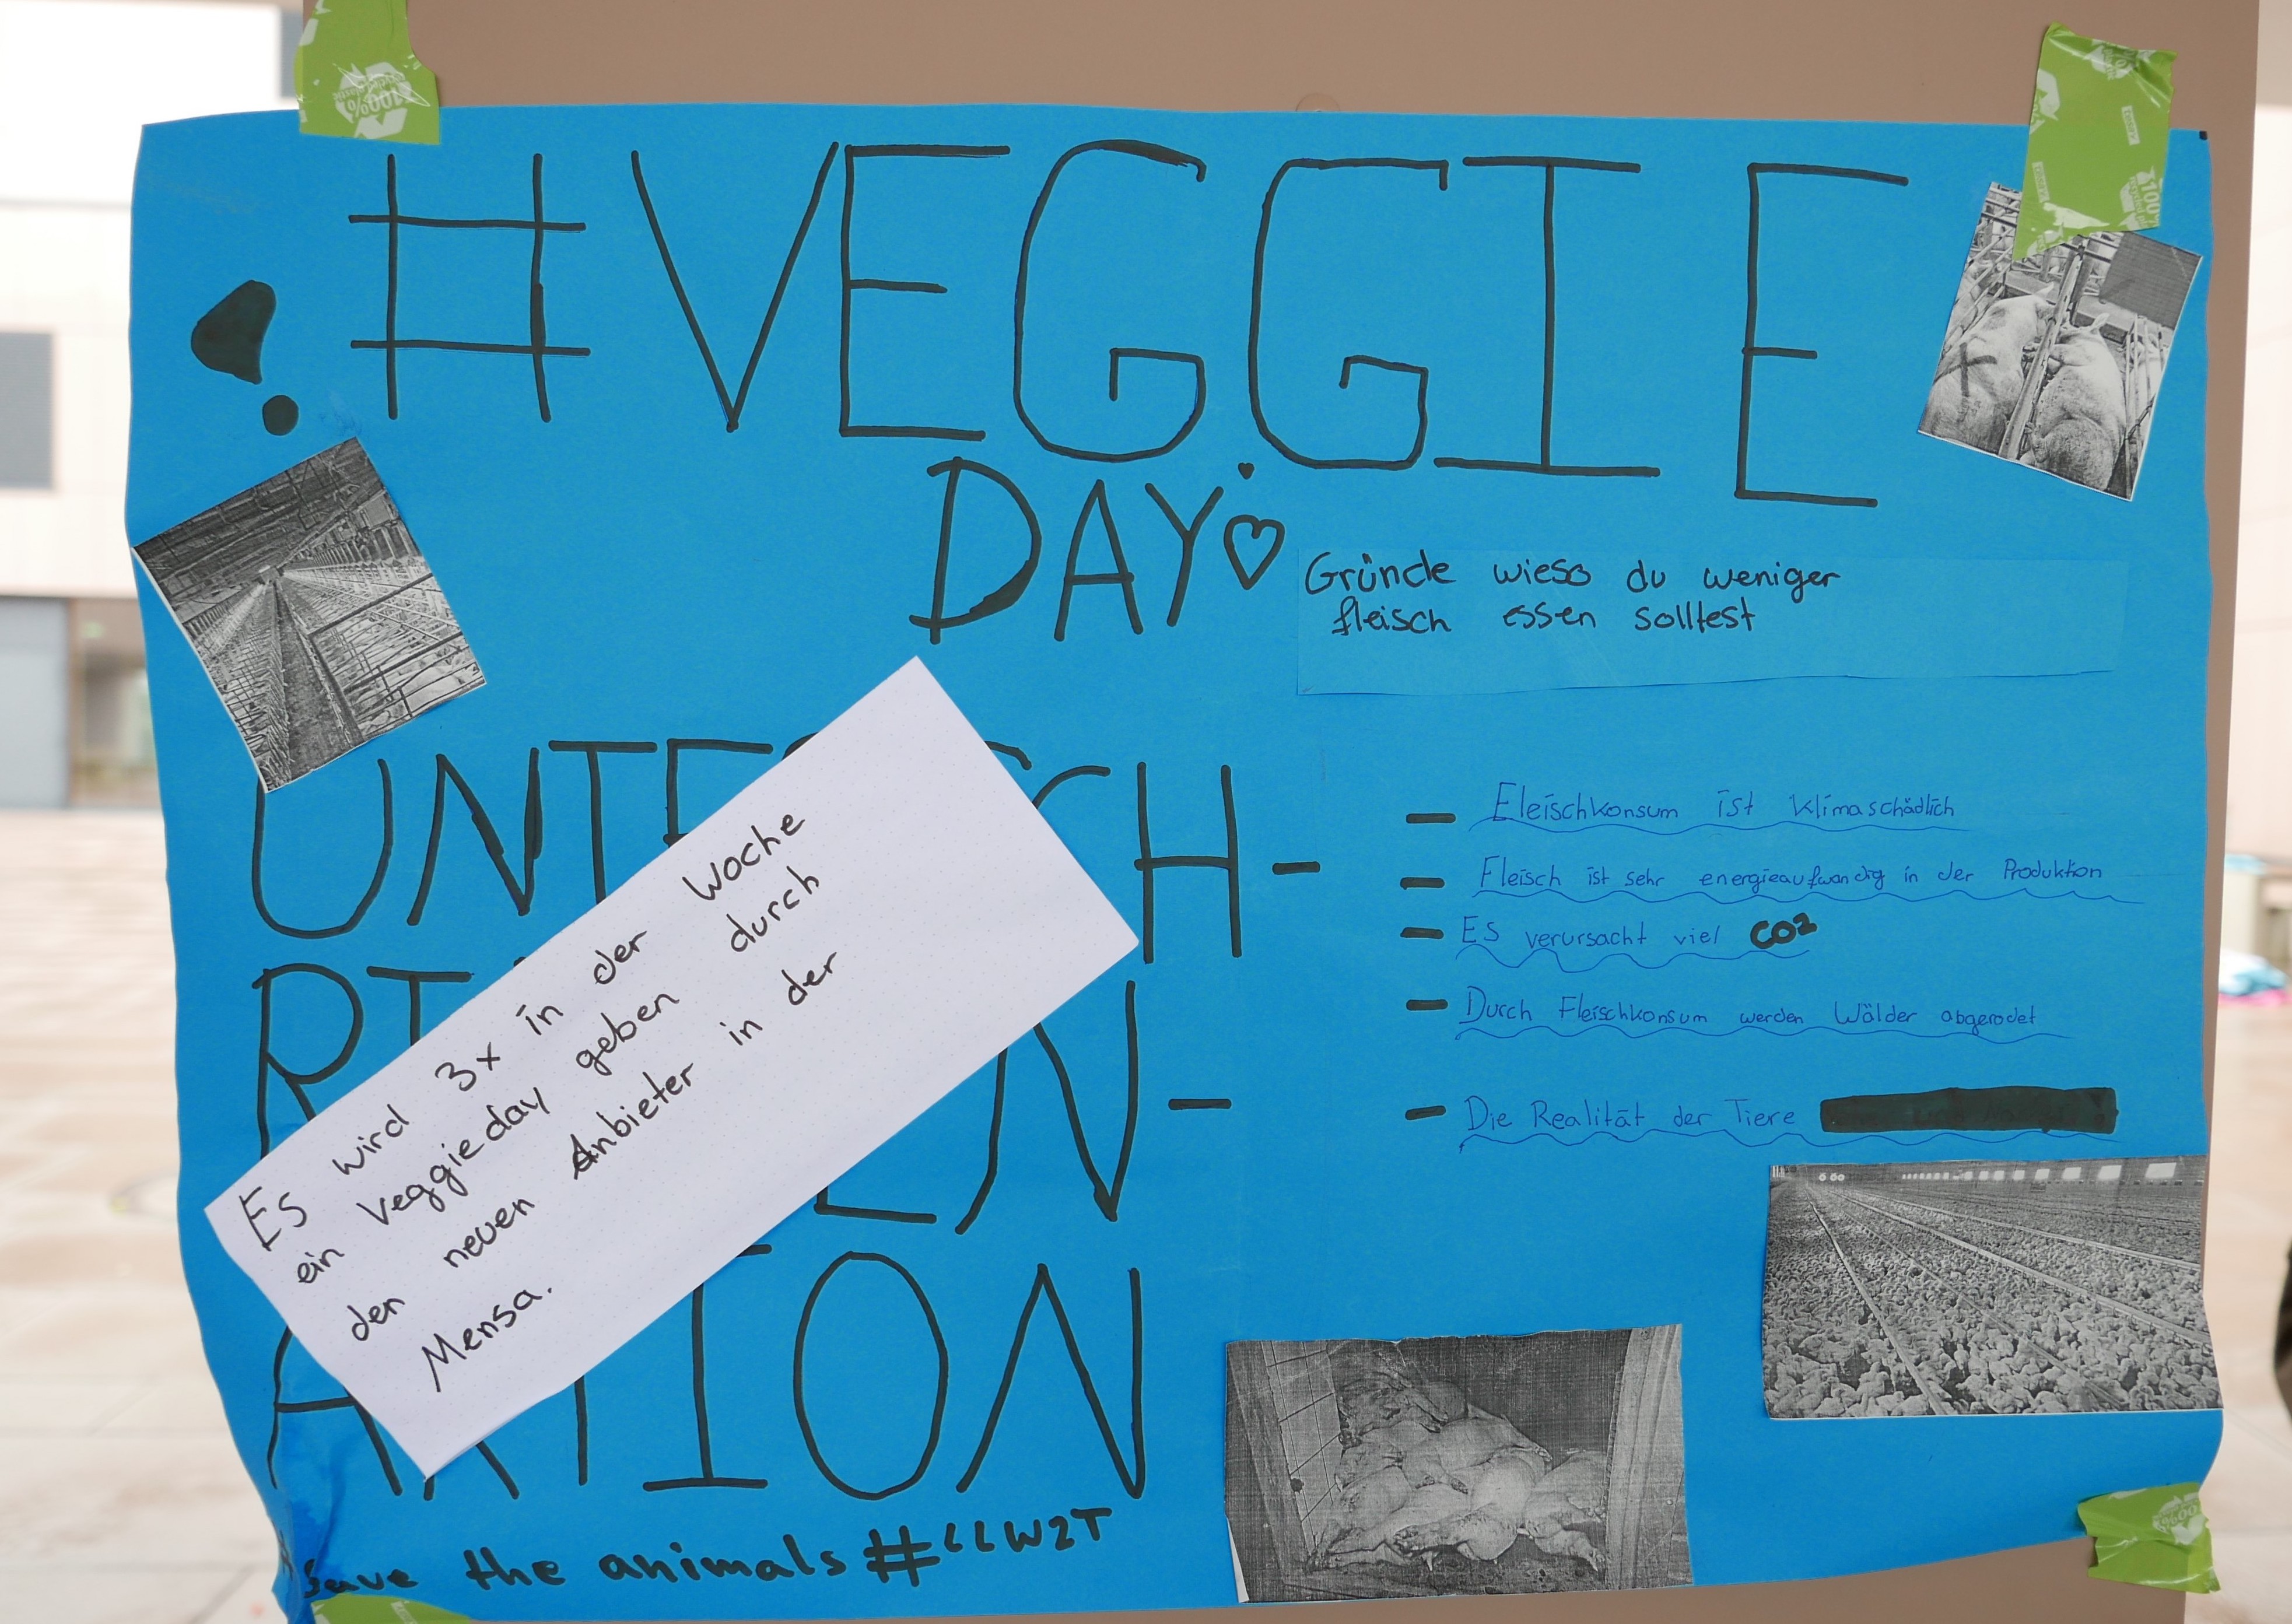 #VEGGIE
DAY
Gründe wieso du weniger
fleisch essen solltest
- Fleischkonsum ist klimaschädlich
- Fleisch ist sehr energieaufwandig in der Produktion
- Es verursacht viel CO2
- Durch Fleischkonsum werden Wälder abgerodet
- Die Realität der Tiere
Es wird 3x in der Woche
ein Veggieday geben durch
den neuen Anbieter in der
Mensa.
save the animals #LLWZT